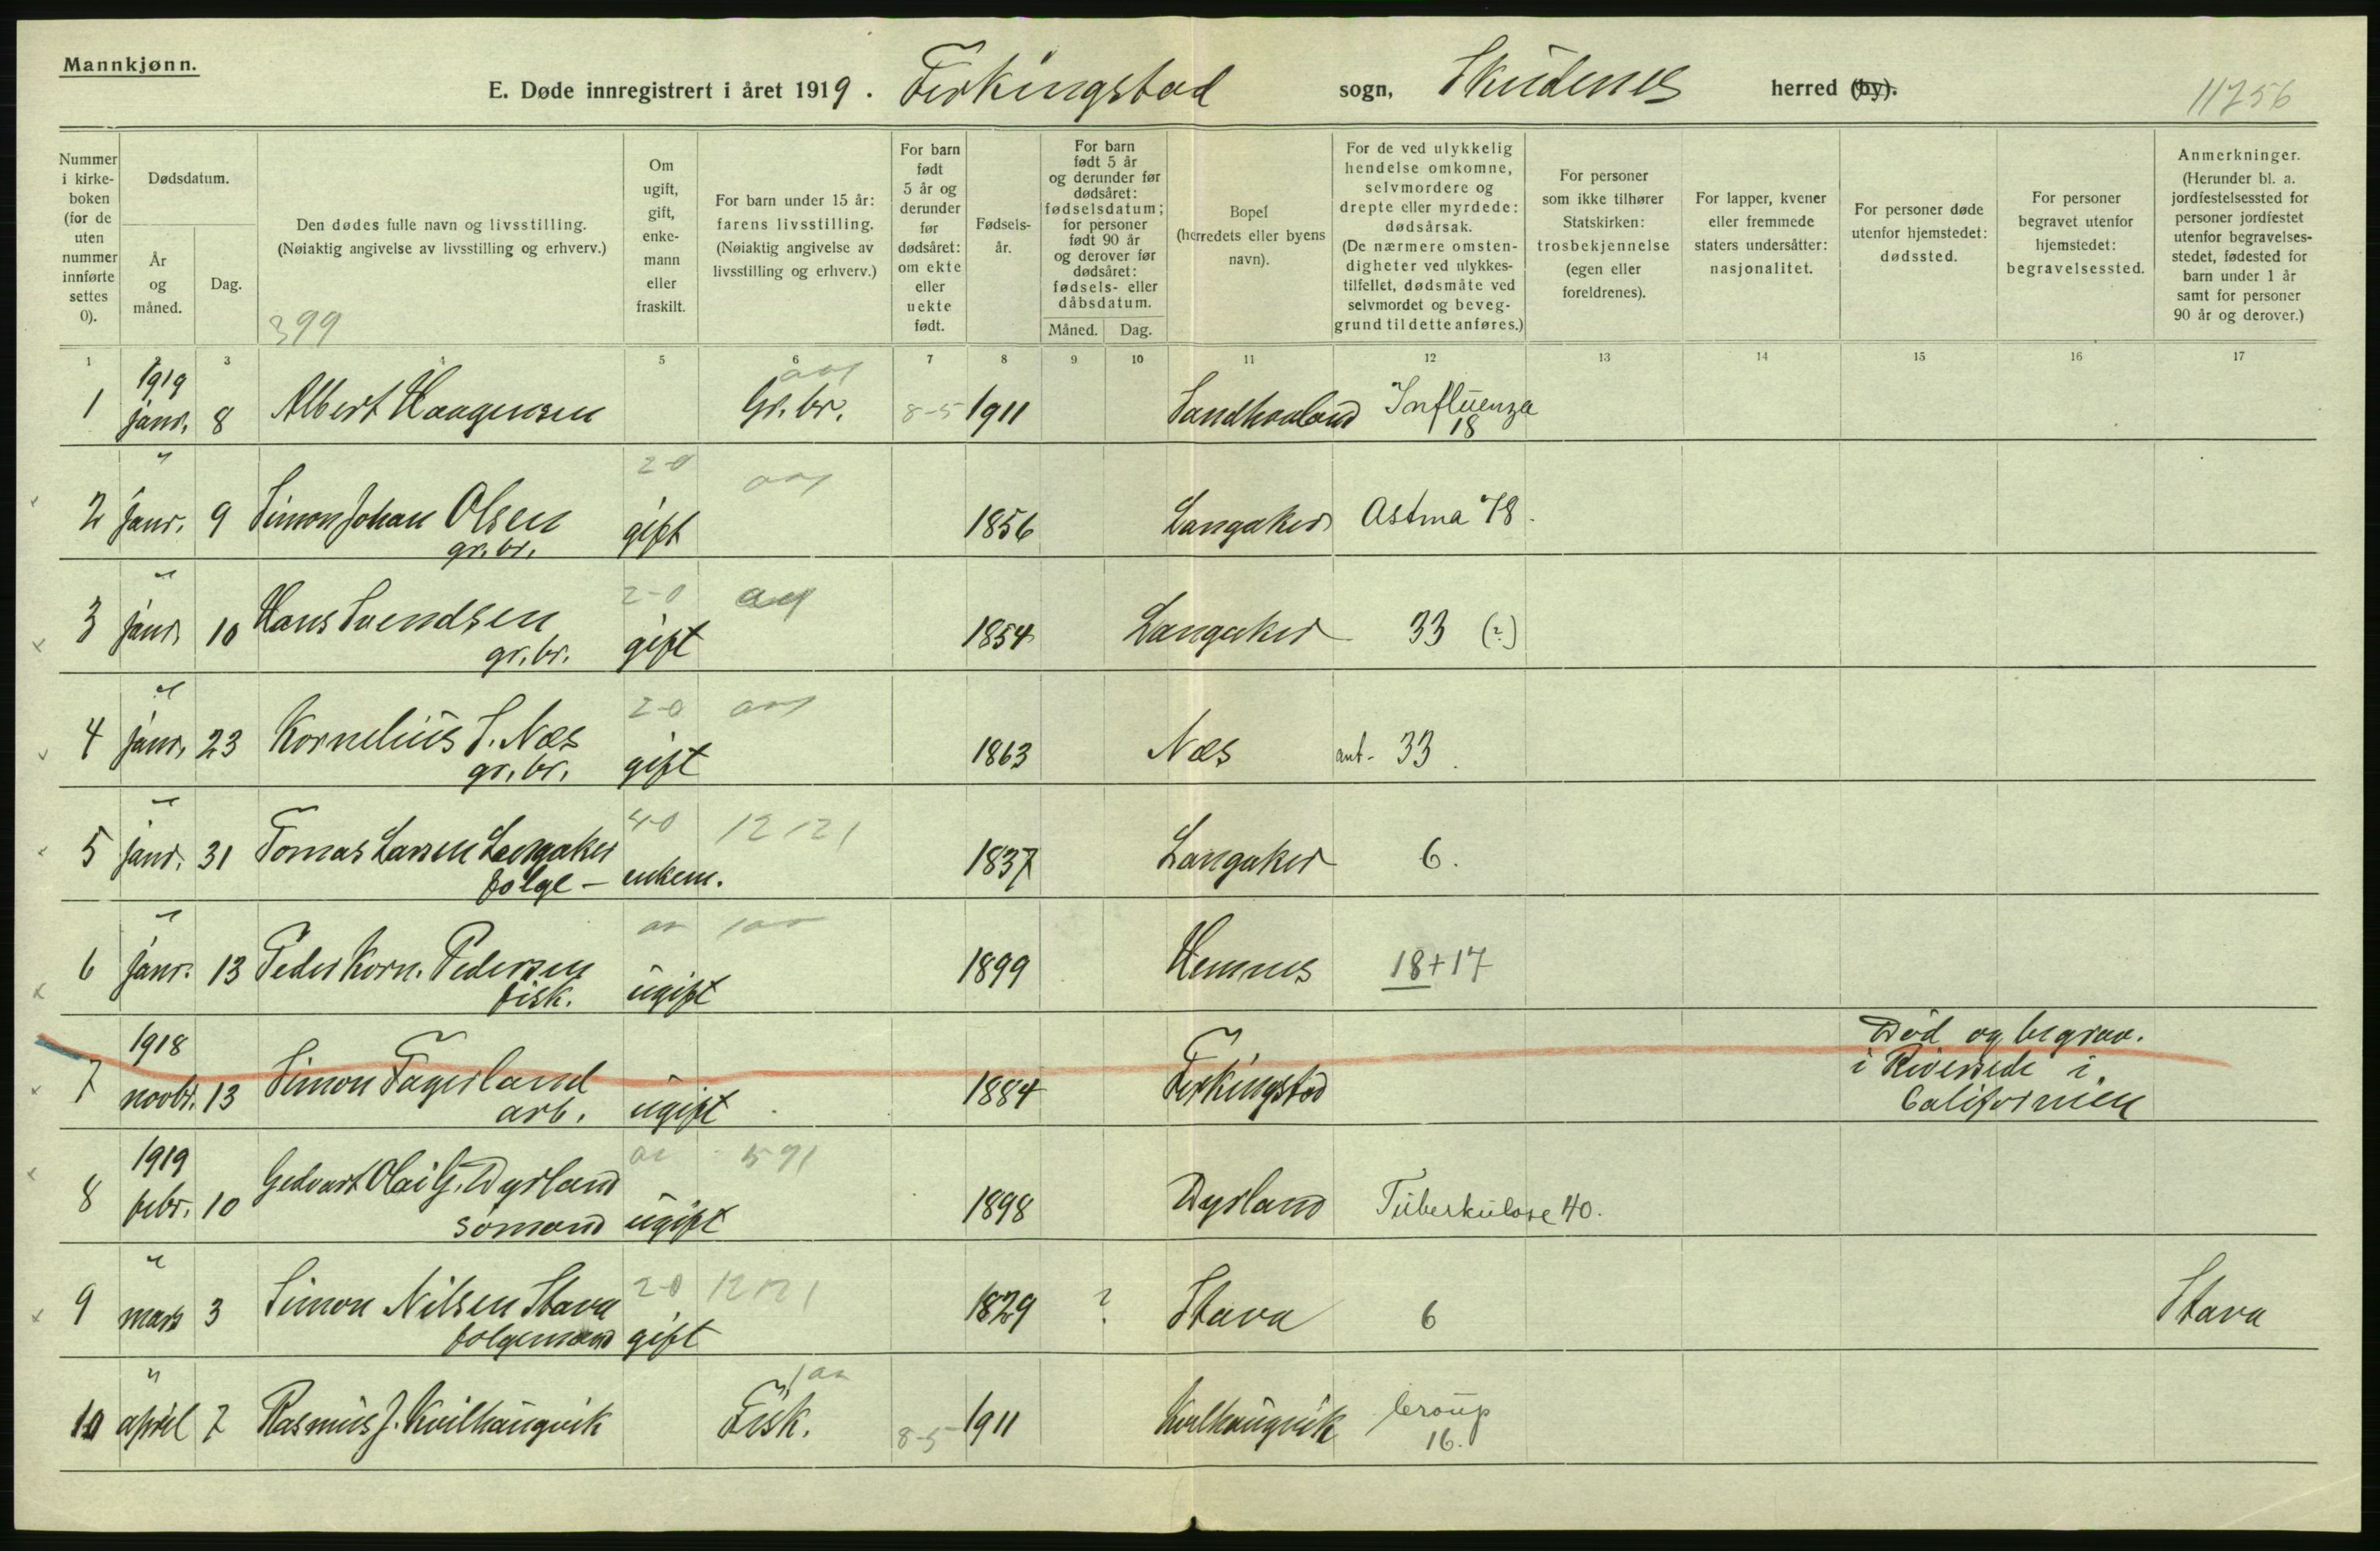 Mannkjønn.
E. Døde innregistrert i året 1919. Ferkingstad sogn, Skudenes herred (by). 11756
Nummer i kirke-boken (for de uten nummer innførte settes 0).
Dødsdatum.
År og måned.
Dag.
Den dødes fulle navn og livsstilling.
(Nøiaktig angivelse av livsstilling og erhverv.)
399
Om ugift, gift, enke-mann eller fraskilt.
For barn under 15 år: farens livsstilling. (Nøiaktig angivelse av livsstilling og erhverv.)
For barn født 5 år og derunder før dødsåret: om ekte eller uekte født.
Fødsels-år.
For barn født 5 år og derunder før dødsåret: fødselsdatum; for personer født 90 år og derover før dødsåret: fødsels- eller dåbsdatum.
Måned.
Dag.
Bopel (herredets eller byens navn).
For de ved ulykkelig hendelse omkomne, selvmordere og drepte eller myrdede: dødsårsak. (De nærmere omsten-digheter ved ulykkes-tilfellet, dødsmåte ved selvmordet og beveg-grund til dette anføres.)
For personer som ikke tilhører Statskirken: trosbekjennelse (egen eller foreldrenes).
For lapper, kvener eller fremmede staters undersåtter: nasjonalitet.
For personer døde utenfor hjemstedet: dødssted.
For personer begravet utenfor hjemstedet: begravelsessted.
Anmerkninger. (Herunder bl. a. jordfestelsessted for personer jordfestet utenfor begravelses-stedet, fødested for barn under 1 år samt for personer 90 år og derover.)
1 2 3 4 5 6 7 8 9 10 11 12 13 14 15 16 17
1919
1 janr. 8 Albert Haagensen Gr.br. 8-5 1911 Sandhaaland Influenza
18
" 2-0
2 janr. 9 Simon Johan Olsen gift 1856 Langaker Astma 78.
gr.br.
" 2-0
3 janr. 10 Hans Svendsen gift 1854 Langaker 33 (?)
gr.br.
" 2-0
4 janr. 23 Kornelius S. Næs gift 1863 Næs ant. 33.
gr.br.
" 4-0 12 121
5 janr. 31 Tomas Larsen Langaker enkem. 1837 Langaker 6.
følge-
"
6 janr. 13 Peder Korn. Pedersen ugift 1899 Hemnes 18+17
fisk.
1918 Død og begrav.
7 novbr. 13 Simon Fagerland ugift 1884 Ferkingstad i Riverside i
arb. Californien
1919 591
8 febr. 10 Gedvart Olai G. Dyrland ugift 1898 Dyrland Tuberkulose 40.
sømand
" 2-0 12 121
9 mars 3 Simon Nilsen Stava gift 1829 ? Stava 6 Stava
følgemand
"
10 april 7 Rasmus J. Kvilhaugvik Fisk. 8-5 1911 Kvilhaugvik Croup
16.